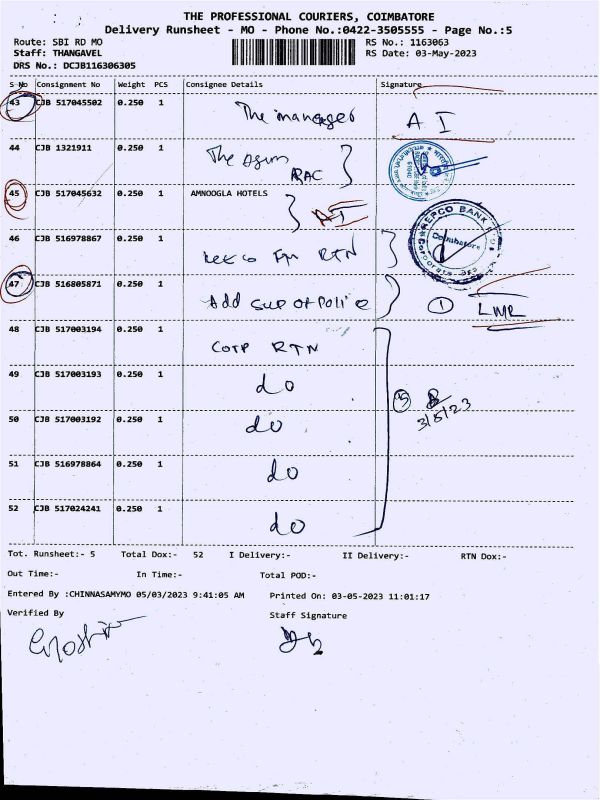 THE PROFESSIONAL COURIERS, COIMBATORE
Delivery Runsheet - MO - Phone No.:0422-3505555 - Page No.:5
Route: SBI RD MO
RS No.: 1163063
Staff: THANGAVEL
RS Date: 03-May-2023
DRS No.: DCJB116306305
S No Consignment No Weight PCS Consignee Details Signature
43 CJB 517045502 0.250 1 The manager A I
44 CJB 1321911 0.250 1 The
RAC
45 CJB 517045632 0.250 1 AMNOOGLA HOTELS
REPCO BANK
Coimbatore
46 CJB 516978867 0.250 1 RTN
47 CJB 516805871 0.250 1 Add Sup of Police 1
48 CJB 517003194 0.250 1 Corp RTN
49 CJB 517003193 0.250 1 do
5
3/5/23
50 CJB 517003192 0.250 1 do
51 CJB 516978864 0.250 1 do
52 CJB 517024241 0.250 1 do
Tot. Runsheet:- 5 Total Dox:- 52 I Delivery:- II Delivery:- RTN Dox:-
Out Time:- In Time:- Total POD:-
Entered By :CHINNASAMYMO 05/03/2023 9:41:05 AM Printed On: 03-05-2023 11:01:17
Verified By Staff Signature